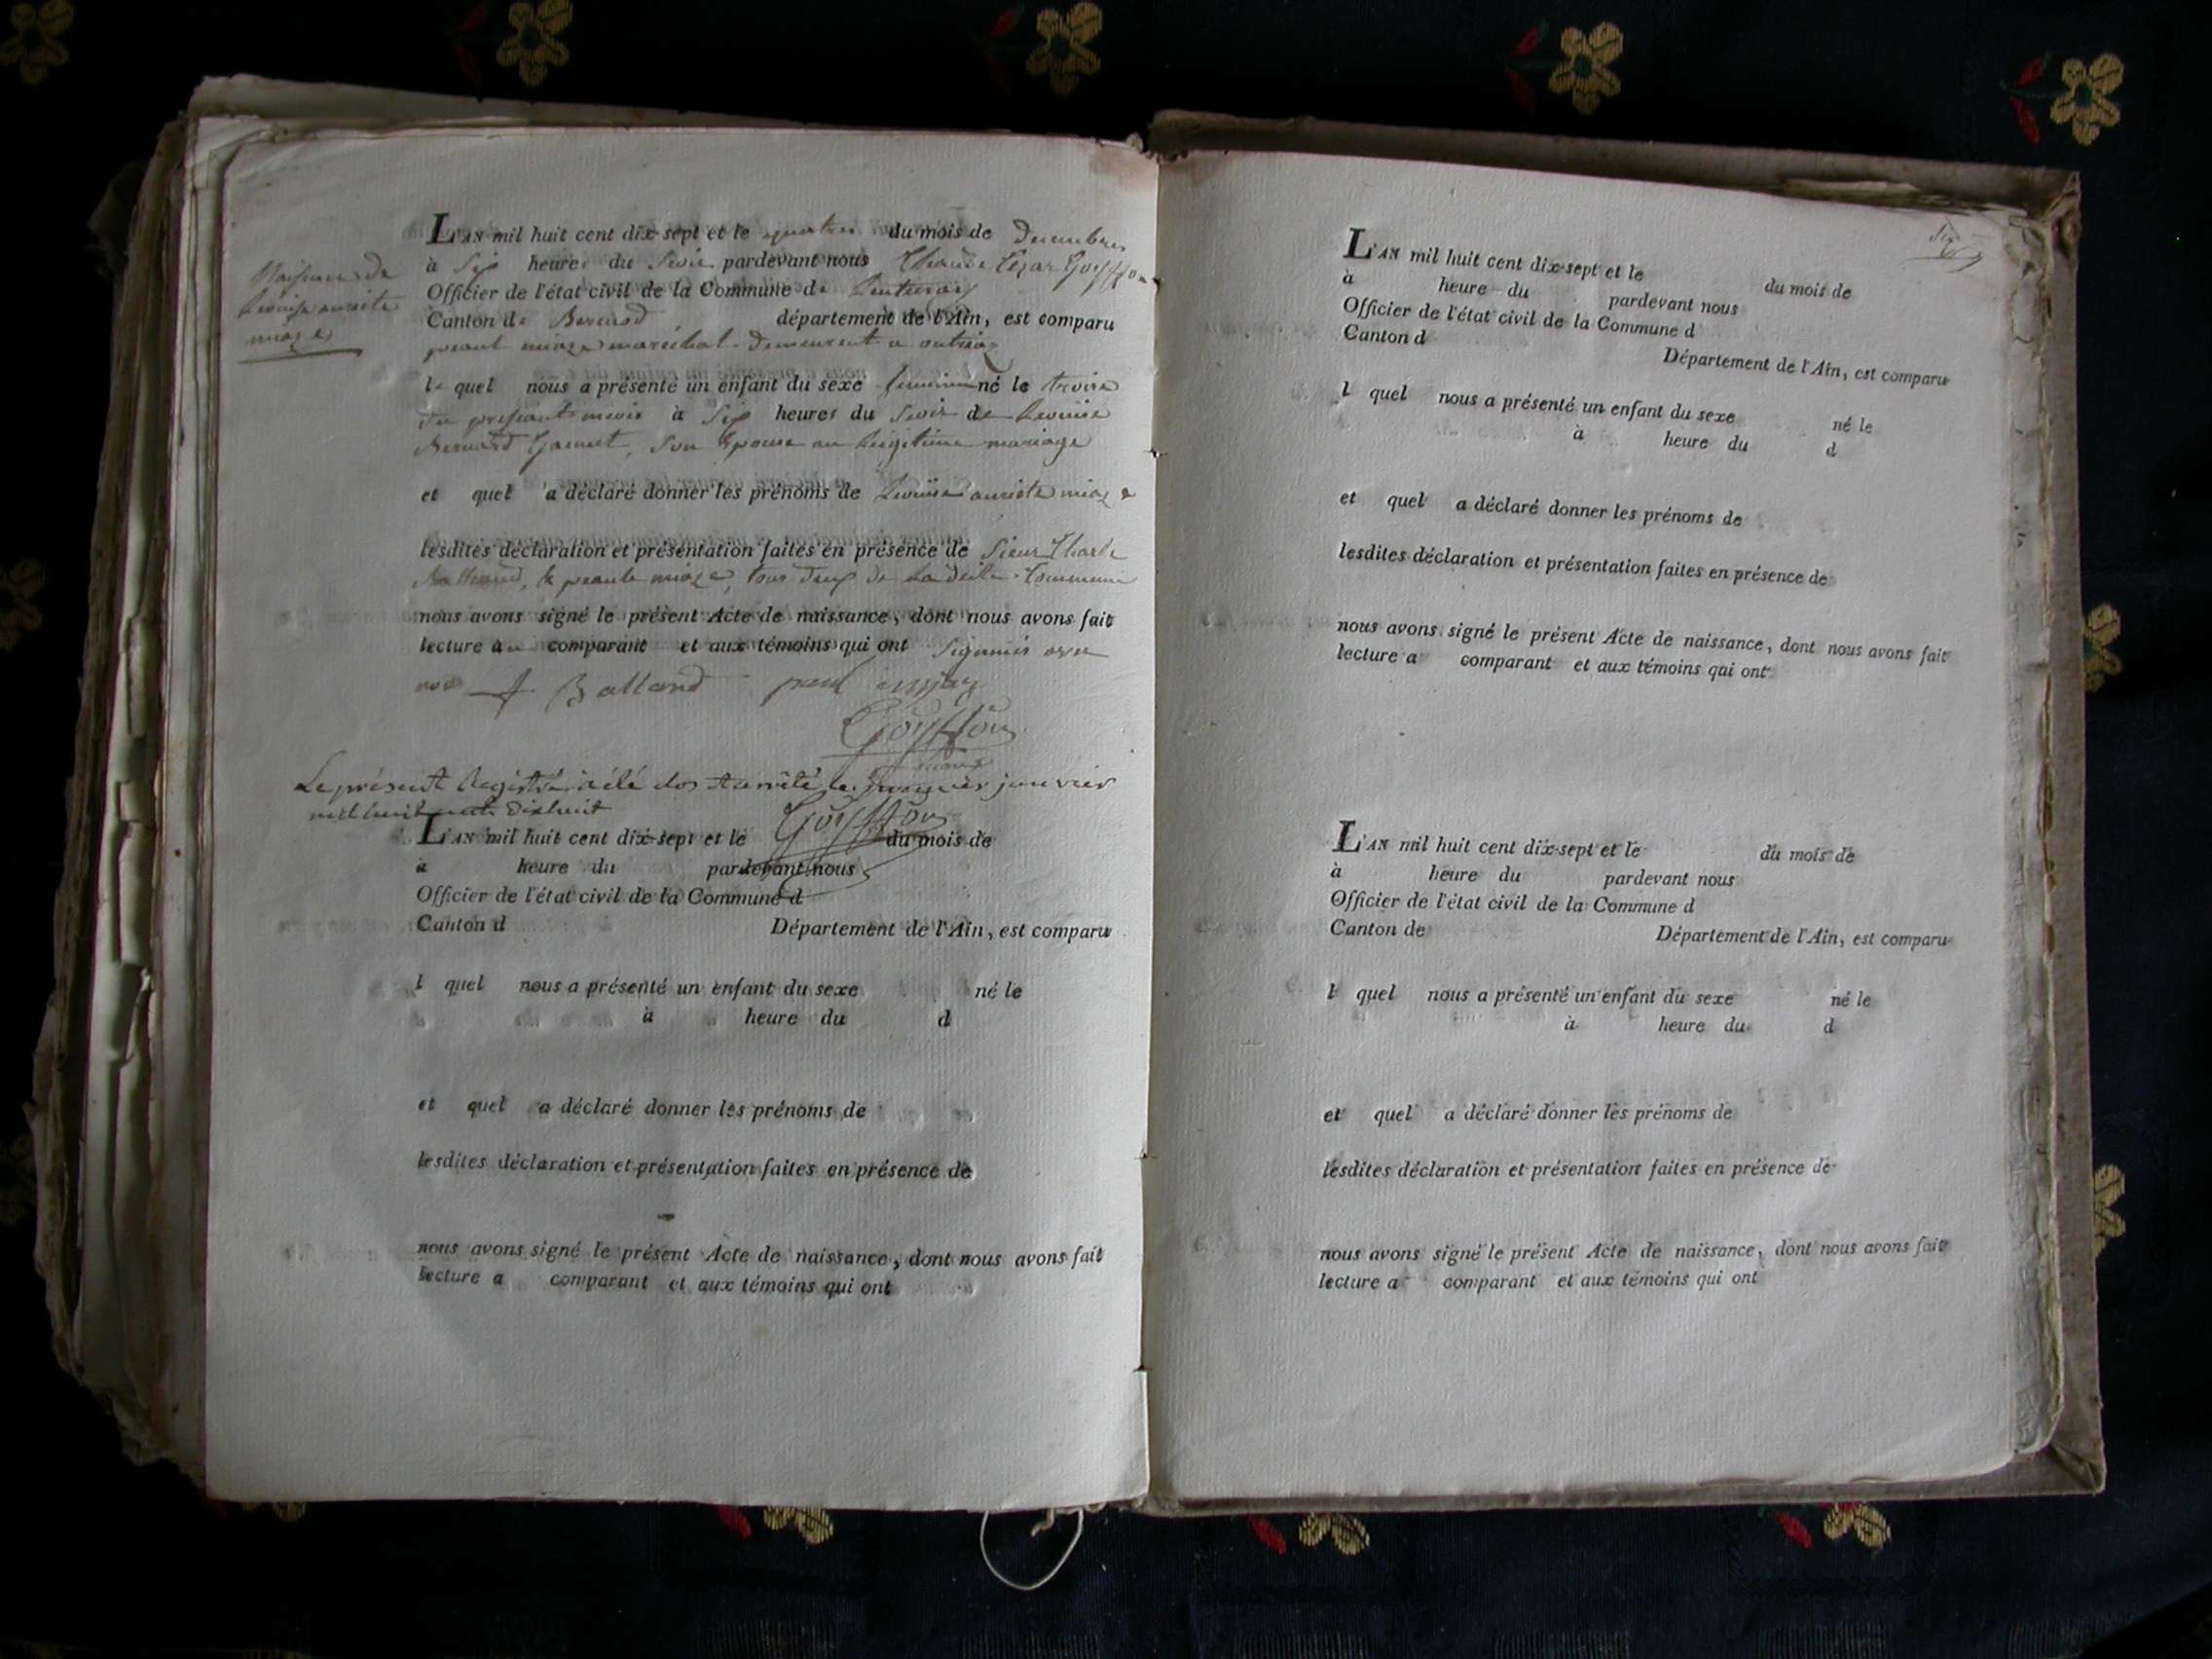 Naissance de
Louise auriste
miaze
L'AN mil huit cent dix-sept et le quatre du mois de Decembre
à Six heures du Soir pardevant nous Claude Cezar Goiffon
Officier de l'état civil de la Commune de
Canton de département de l'Ain, est comparu
miaze marechal demeurant a outriaz
le quel nous a présenté un enfant du sexe feminin né le troire
du presant mois à Six heures du Soir de Louise
Bernard Son Epouse an Legitime mariage
et quel a déclaré donner les prénoms de Louise auriste miaze
lesdites déclaration et présentation faites en présence de Sieur Charle
miaze, tous deux de La ditte Commune
nous avons signé le présent Acte de naissance, dont nous avons fait
lecture au comparant et aux témoins qui ont Signiés avec
nous Balland
Goiffon
maire
Le présent Registre a été clos et arrêté le premier janvier
mil huit cent dixhuit
Goiffon
L'AN mil huit cent dix-sept et le du mois de
à heure du pardevant nous
Officier de l'état civil de la Commune d
Canton d Département de l'Ain, est comparu
l quel nous a présenté un enfant du sexe né le
à heure du d
et quel a déclaré donner les prénoms de
lesdites déclaration et présentation faites en présence de
nous avons signé le présent Acte de naissance, dont nous avons fait
lecture a comparant et aux témoins qui ont
L'AN mil huit cent dix-sept et le du mois de
à heure du pardevant nous
Officier de l'état civil de la Commune d
Canton d Département de l'Ain, est comparu
l quel nous a présenté un enfant du sexe né le
à heure du d
et quel a déclaré donner les prénoms de
lesdites déclaration et présentation faites en présence de
nous avons signé le présent Acte de naissance, dont nous avons fait
lecture a comparant et aux témoins qui ont
L'AN mil huit cent dix-sept et le du mois de
à heure du pardevant nous
Officier de l'état civil de la Commune d
Canton de Département de l'Ain, est comparu
l quel nous a présenté un enfant du sexe né le
à heure du d
et quel a déclaré donner les prénoms de
lesdites déclaration et présentation faites en présence de
nous avons signé le présent Acte de naissance, dont nous avons fait
lecture a comparant et aux témoins qui ont